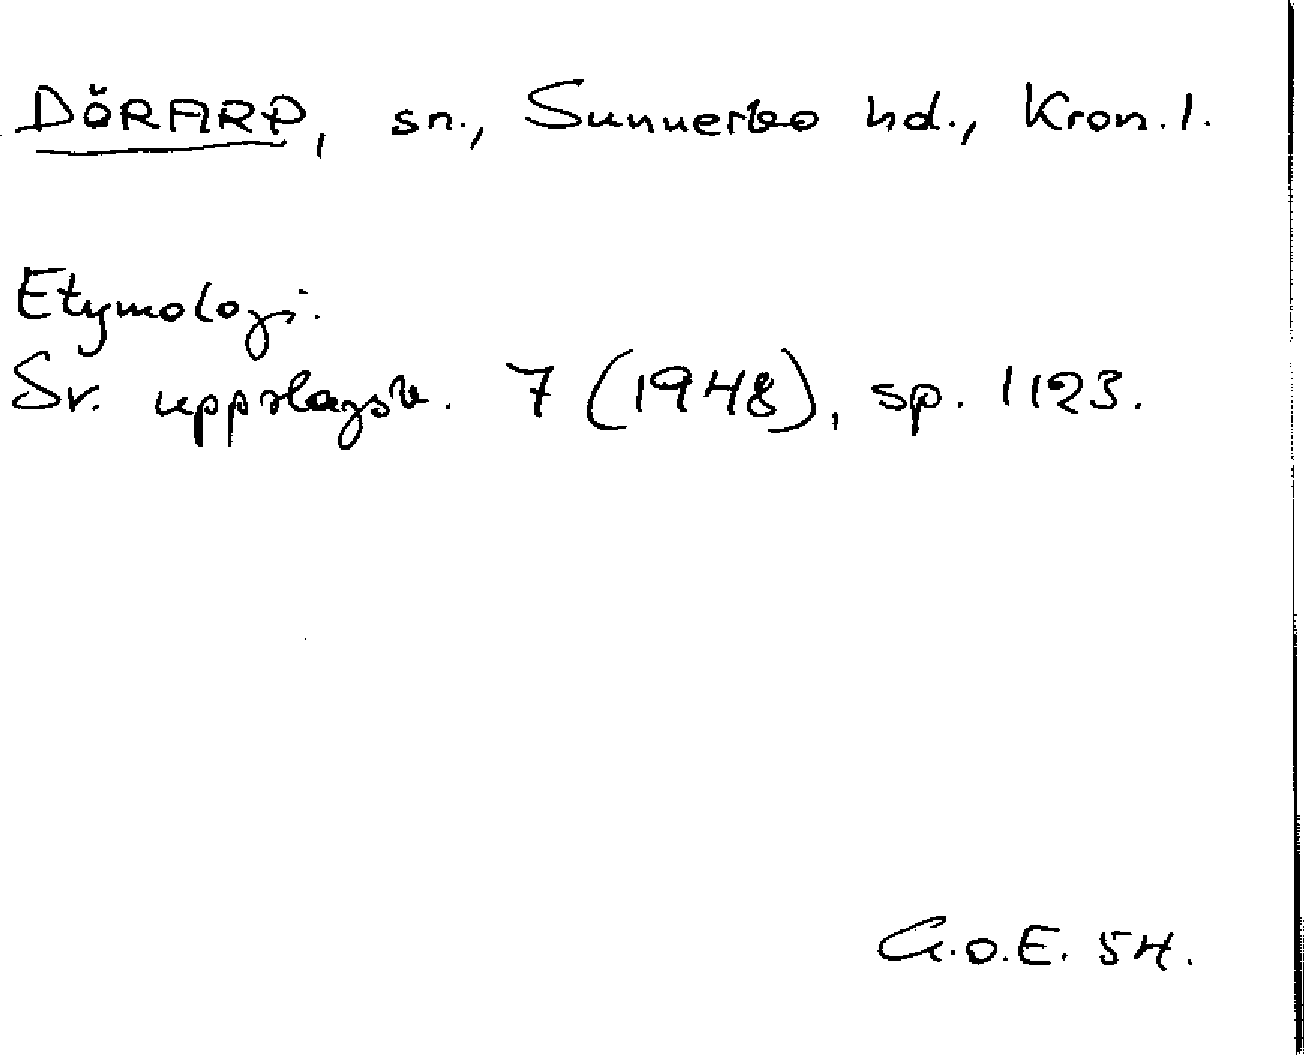 DÖRARP, sn., Sunnerbo hd., Kron. l.
Etymologi.
Sv. uppslagsb. 7 (1948), sp. 1123.
G.O.E. 54.